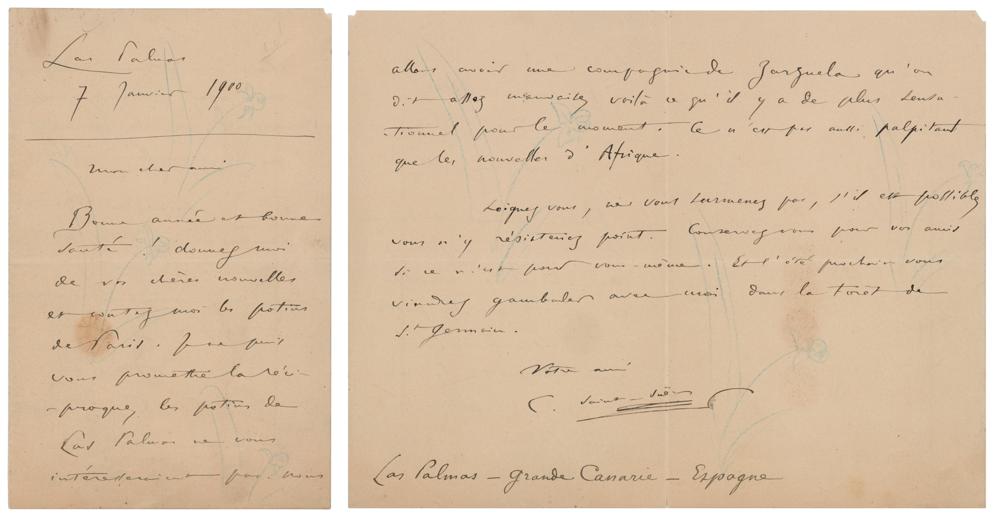 Las Palmas
7 Janvier 1900
Mon cher ami
Bonne année et bonne
santé ! donnez moi
de vos chères nouvelles
et contez moi les potins
de Paris. Je ne puis
vous promettre la réci-
-proque, les potins de
Las Palmas ne vous
intéresseraient pas. nous
allons avoir une compagnie de Zarzuela qu'on
dit assez mauvaise, voilà ce qu'il y a de plus sensa
-tionnel pour le moment. Ce n'est pas aussi palpitant
que les nouvelles d'Afrique.
Soignez vous, ne vous surmenez pas, s'il est possible,
vous n'y résisteriez point. Conservez vous pour vos amis
si ce n'est pour vous-même. Et l'été prochain vous
viendrez gambader avec moi dans la forêt de
St Germain.
Votre ami
C. Saint-Saëns
Las Palmas – Grande Canarie – Espagne